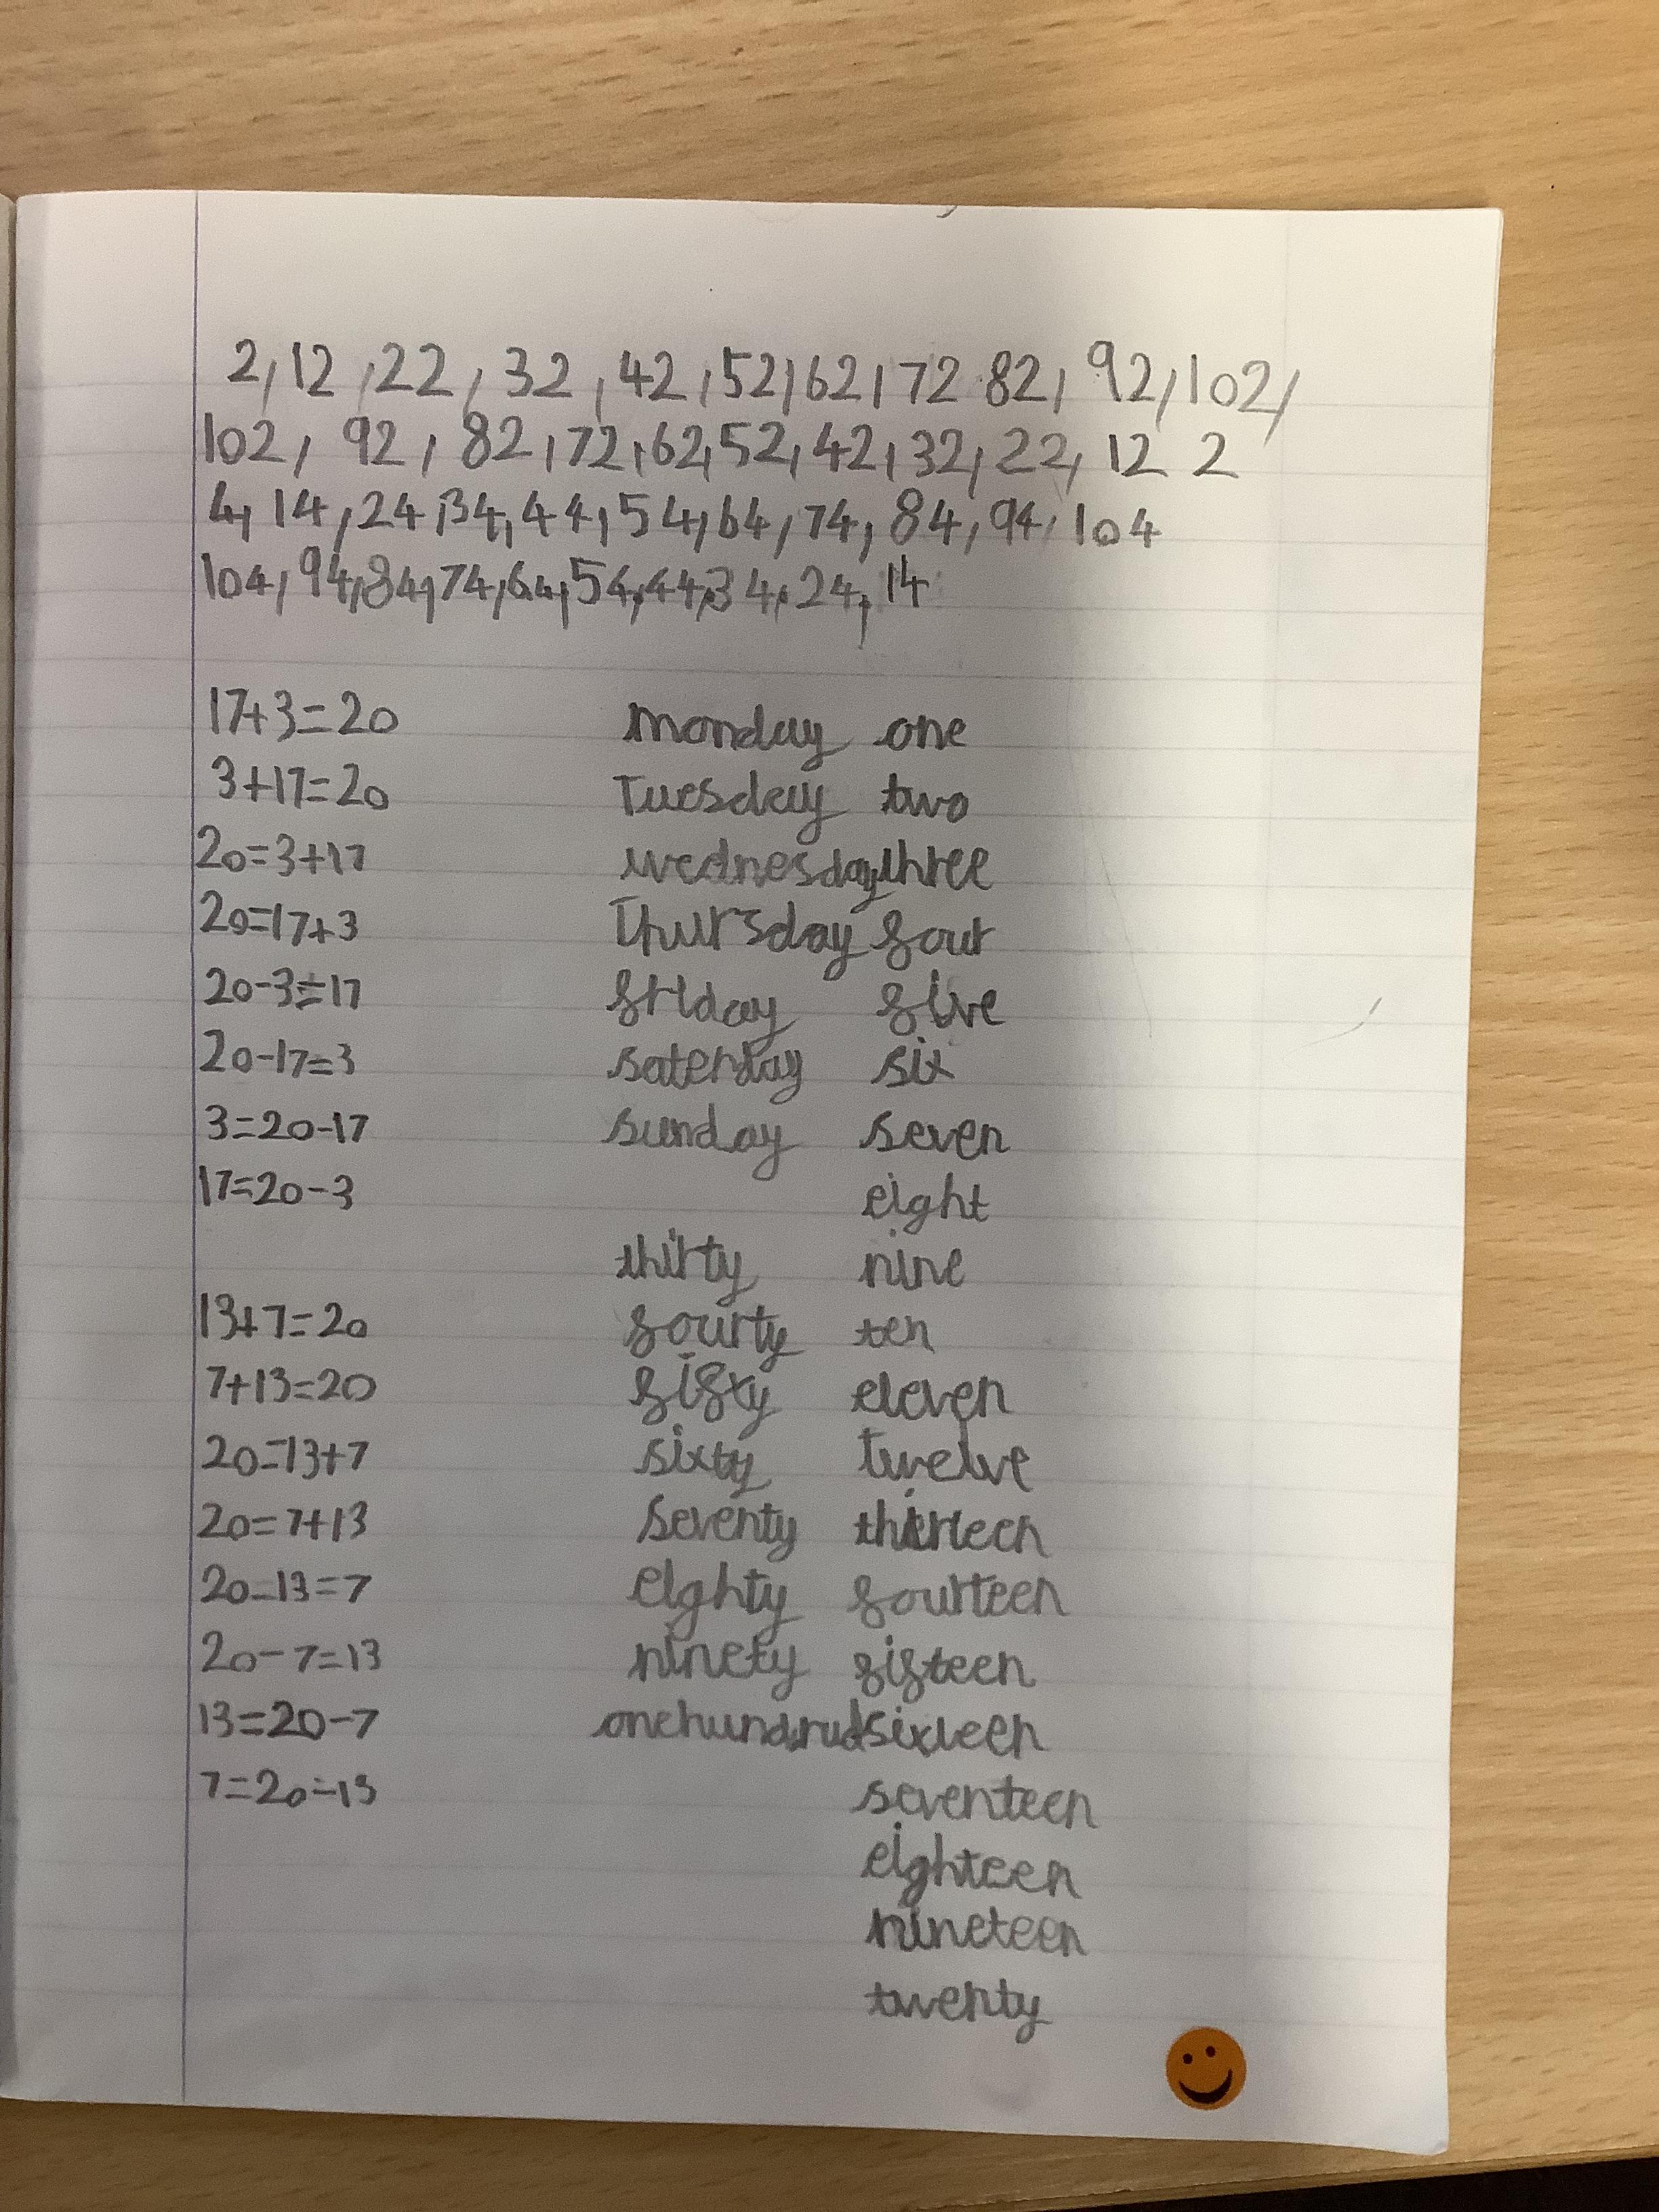 2, 12, 22, 32, 42, 52, 62, 72 82, 92, 102,
102, 92, 82, 72, 62, 52, 42, 32, 22, 12 2
4, 14, 24, 34, 44, 54, 64, 74, 84, 94, 104
104, 94, 84, 74, 64, 54, 44, 34, 24, 14
17+3=20
3+17=20
20=3+17
20=17+3
20-3=17
20-17=3
3=20-17
17=20-3
13+7=20
7+13=20
20=13+7
20=7+13
20-13=7
20-7=13
13=20-7
7=20-13
monday
Tuesday
wednesday
Thursday
friday
saterday
sunday
thirty
fourty
fifty
sixty
seventy
eighty
ninety
onehundrud
one
two
three
four
five
six
seven
eight
nine
ten
eleven
twelve
thirteen
fourteen
fifteen
sixteen
seventeen
eighteen
nineteen
twenty